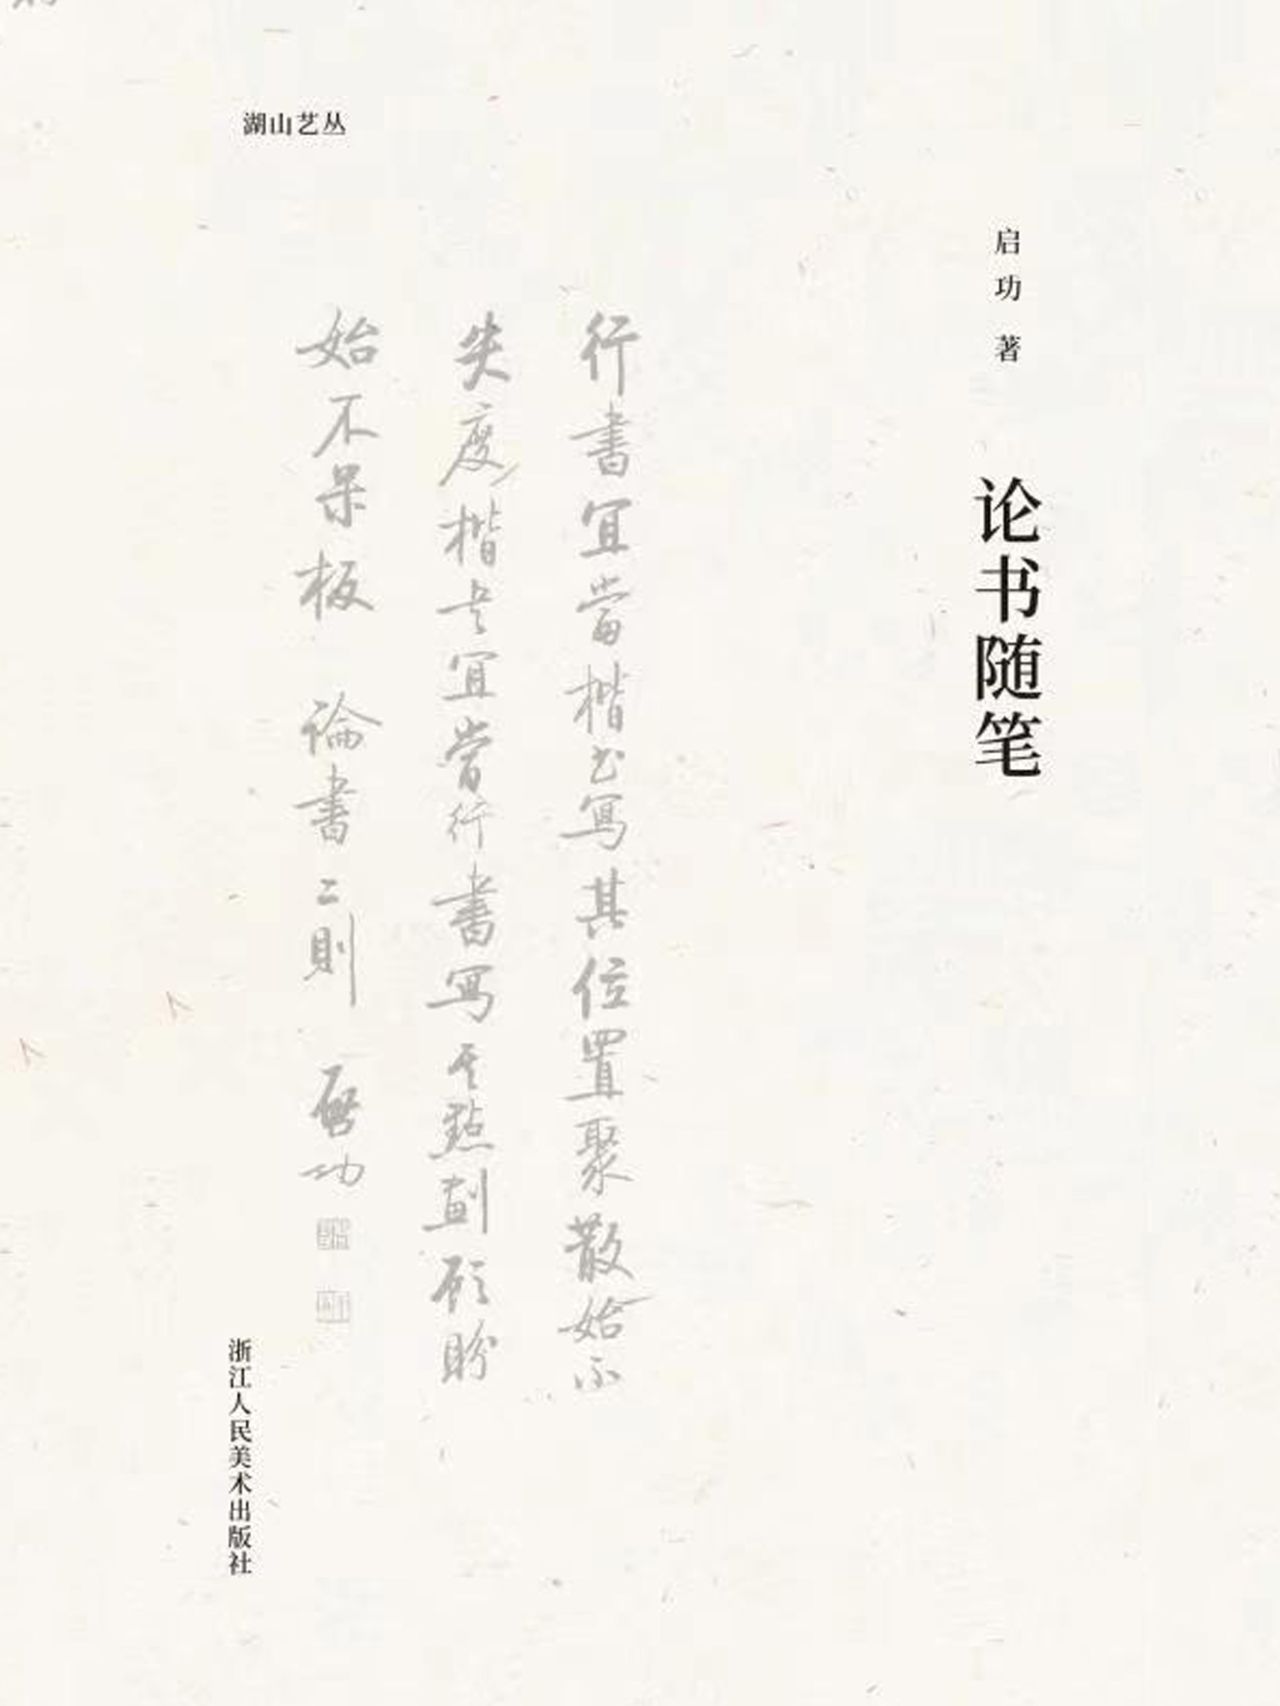 湖山艺丛
启功 著
论书随笔
行書宜當楷书寫其位置聚散始不
失度楷书宜當行書寫其點畫顾盼
始不呆板 論書二則 启功
浙江人民美术出版社